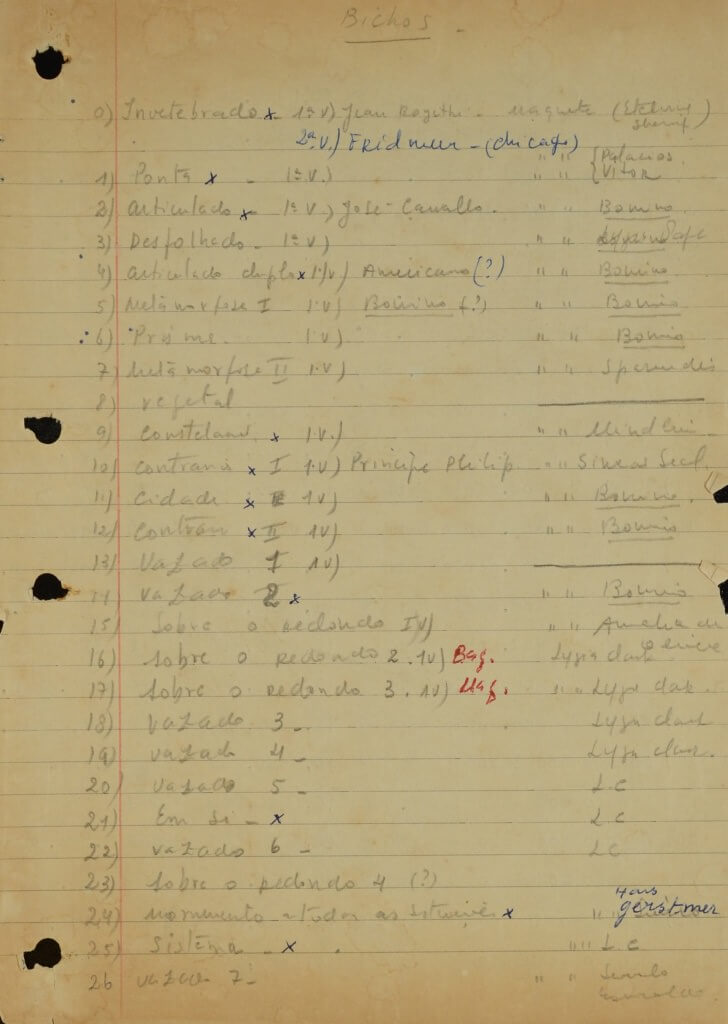 Bichos
0) Invetebrado x 1ª V) Jean - Maquete (
2ª V.) Fridmeer - (chicago)
1) Ponta x - 1ª V.) " " { Palacios
" " Vitor
2) Articulado x 1ª V.) José Carvallo. " " Bonino
3) Desfolhado - 1ª V) " "
4) Articulado duplo x 1.V) Americano (?) " " Bonino
5) Metamorfose I 1.V) Bonino (?) " " Bonino
6) Prisme. 1.V) " " Bonino
7) Metamorfose II 1.V) " "
8) vegetal
9) Constelaau x 1.V.) " " Mindlin
10) Contrario x I 1V) Principe Philip. " "
11) Cidade x 1V) " " Bonino.
12) Contrario x II 1V) " " Bonino
13) Vazado 1 1V)
14 Vazado 2 x " " Bonino
15) Sobre o redondo IV) " " Amelia
16) Sobre o redondo 2. 1V) Bag. Lygia Clark
17) Sobre o redondo 3. 1V) Mag. " " Lygia Clark.
18) Vazado 3 - Lygia Clark
19) Vazado 4 - Lygia Clark.
20) Vazado 5 - L.C
21) Em Si - x L.C
22) Vazado 6 - LC
23) Sobre o redondo 4 (?)
24) Monumento a todas as x " " gerstmer
25) Sistema - x . " " L.C
26 Vazado 7 - " "